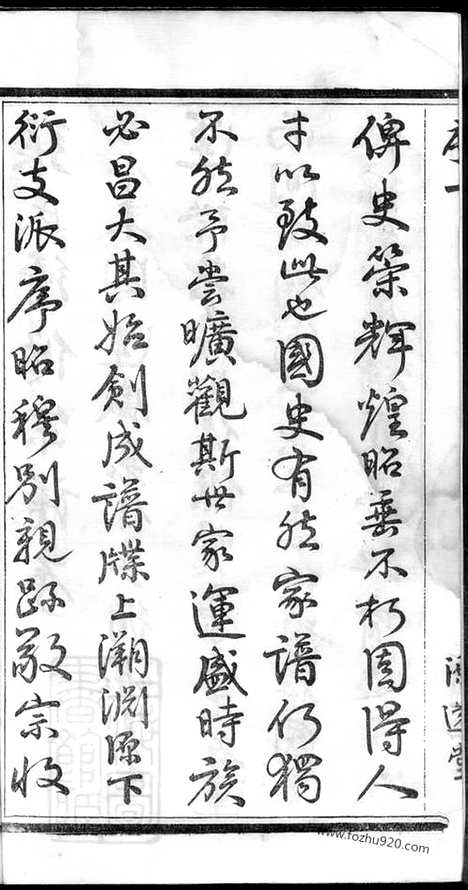 序一
俾史策輝煌昭垂不朽固得人
才以致此也國史有然家譜何獨
不然予嘗曠觀斯世家運盛時族
必昌大其始創成譜牒上溯淵源下
衍支派序昭穆別親疏敬宗收
www.fozhu920.com